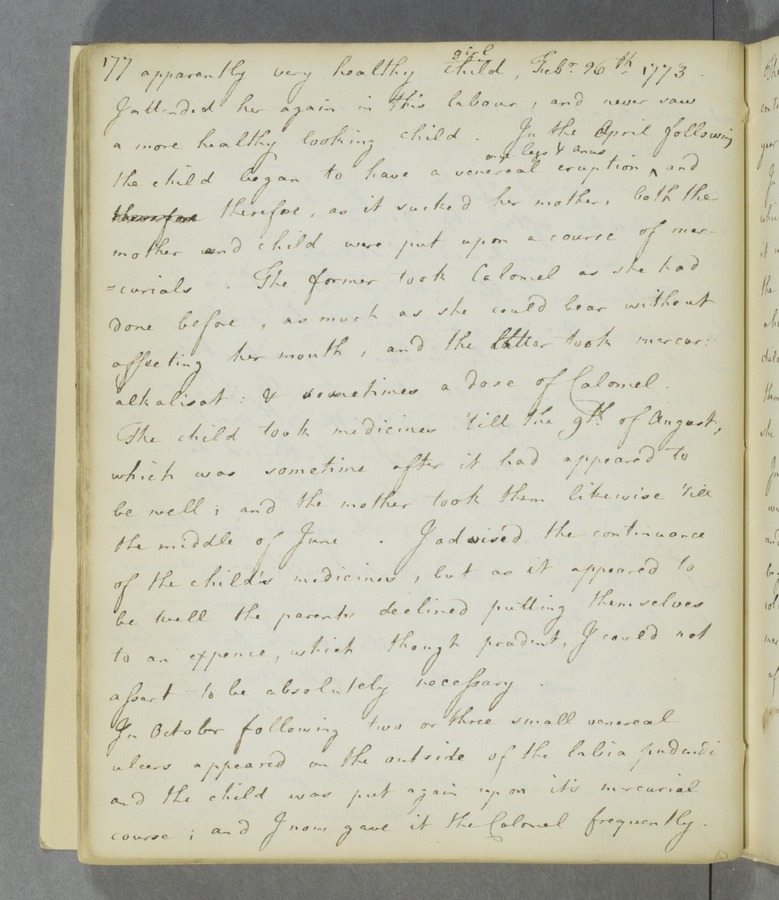 177 apparently very healthy girl child, Feb.r 26th. 1773.
I attended her again in this labour, and never saw
a more healthy looking child. In the April following
one legs & anus
the child began to have a venereal eruption ^ and
therefore therefore, as it sucked her mother, both the
mother and child were put upon a course of mer-
=curials. The former took Calomel as she had
done before, as much as she could bear without
affecting her mouth, and the latter took mercur:
alkalisat: & sometimes a dose of Calomel.
The child took medicines 'till the 9th. of August,
which was sometime after it had appeared to
be well; and the mother took them likewise 'till
the middle of June. I advised the continuance
of the child's medicines, but as it appeared to
be well the parents declined putting themselves
to an expence, which though prudent, I could not
assert to be absolutely necessary.
In October following two or three small venereal
ulcers appeared on the outside of the labia pudendi
and the child was put again upon it's mercurial
course; and I now gave it the Calomel frequently.